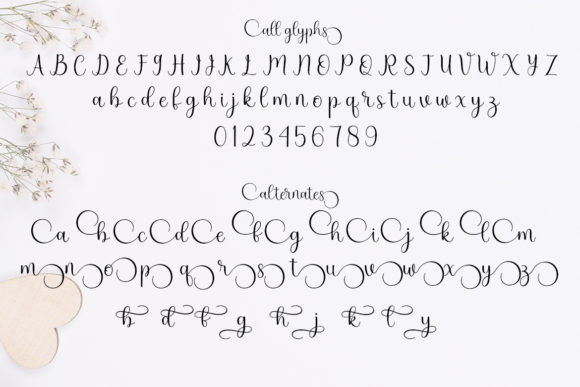 all glyphs
A B C D E F G H I J K L M N O P Q R S T U V W X Y Z
a b c d e f g h i j k l m n o p q r s t u v w x y z
0 1 2 3 4 5 6 7 8 9
alternates
a b c d e f g h i j k l m
m n o p q r s t u v w x y z
b d f g h j k l y